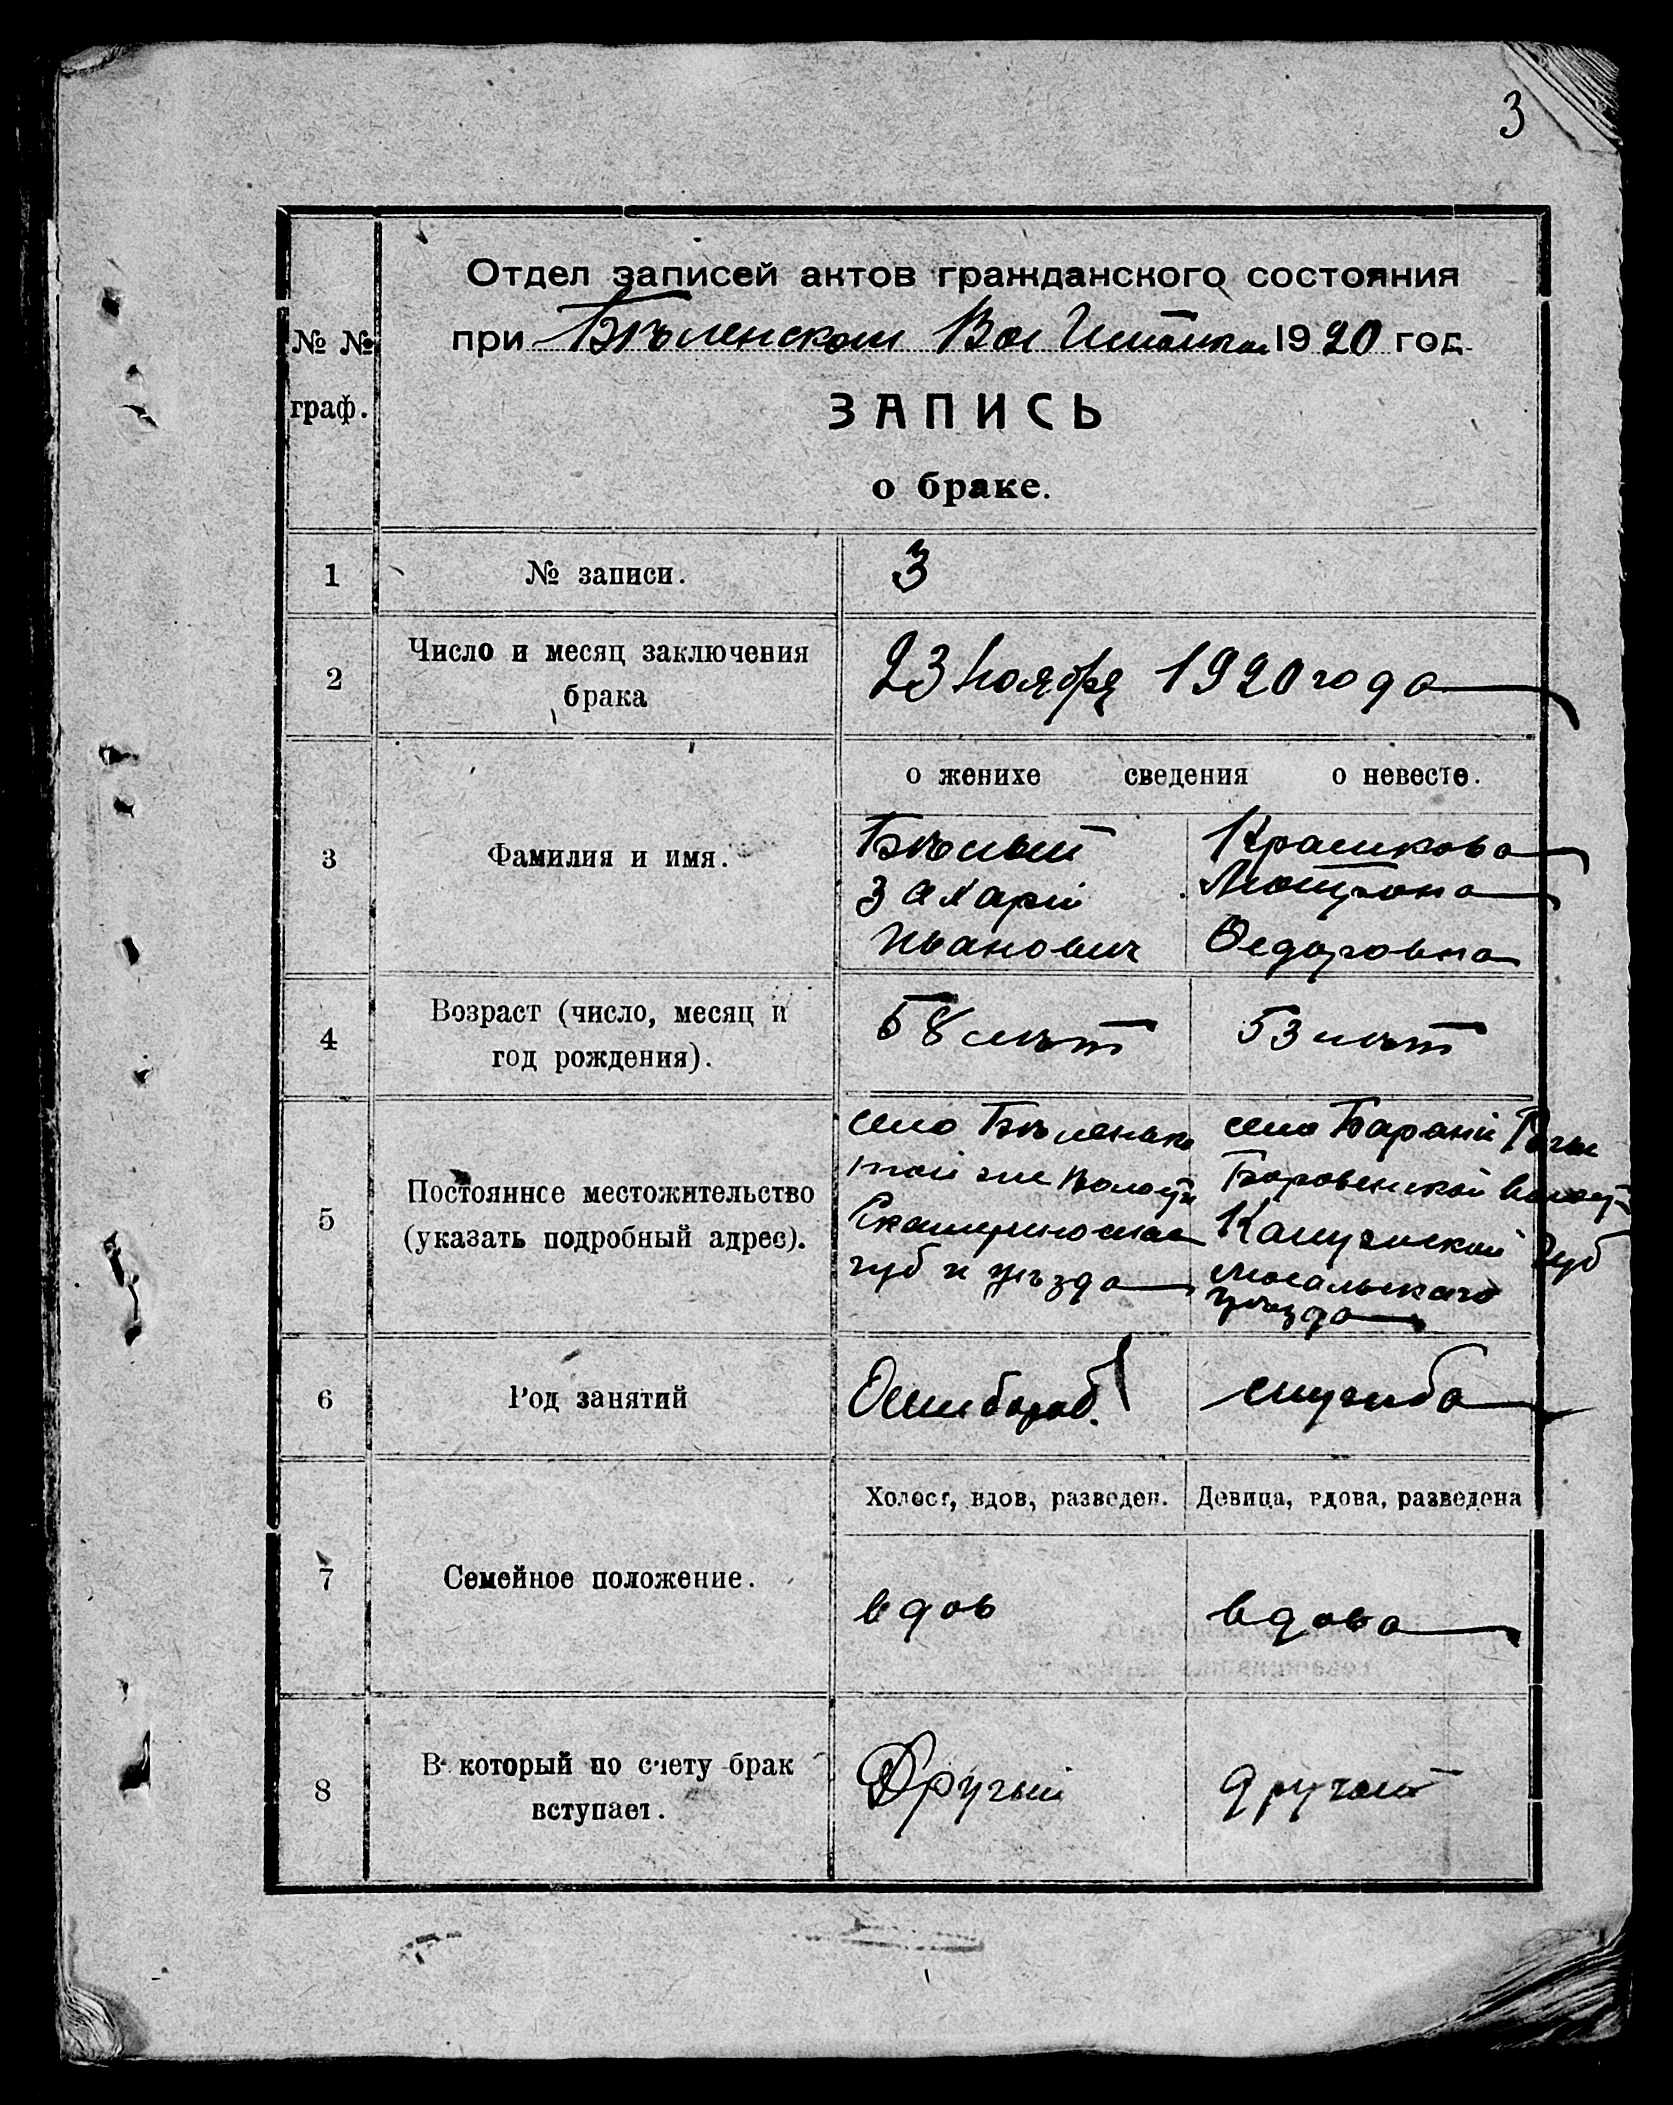 3
№ №
граф.
Отдел записей актов гражданского состояния
при Бѣленском Вол 1920 год
ЗАПИСЬ
о браке.
1
№ записи.
3
2
Число и месяц заключения
брака
23 Ноября 1920 года
о женихе сведения о невесте.
3
Фамилия и имя.
Бѣлый
Захарій
Иванович
Крашкова
Ѳедоровна
4
Возраст (число, месяц и
год рождения).
58 лѣт
53 лѣт
5
Постоянное местожительство
(указать подробный адрес).
село Бѣленьк
той же Волост
Екатериносла
губ и уѣзда
село Бараній
Боровенской Волост
Калужской Губ
Мосальскаго
уѣзда
6
Род занятий
служба
7
Семейное положение.
Холост, вдов, разведен.
Девица, вдова, разведена
вдов
вдова
8
В который по счету брак
вступает.
Другый
другой